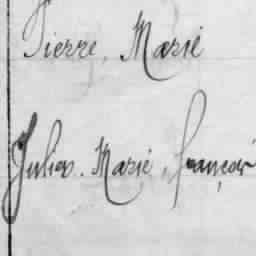 Pierre, Marie
Julien. Marie, françois